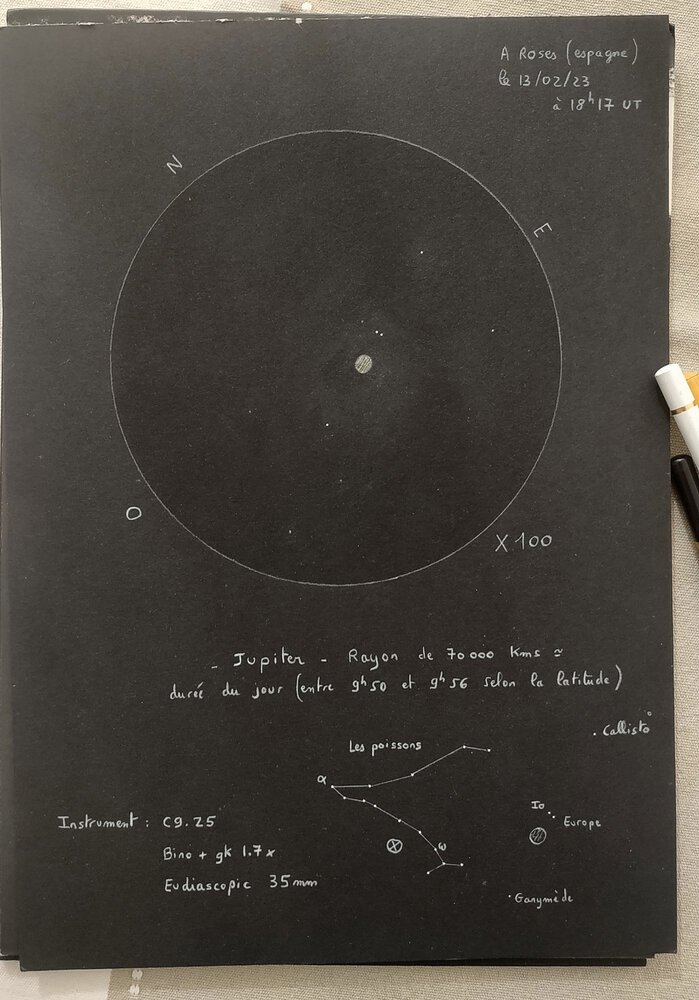 A Roses (espagne)
le 13/02/23
à 18h17 UT
N
E
O
X 100
- Jupiter - Rayon de 70000 Kms ≃
durée du jour (entre 9h50 et 9h56 selon la latitude)
Les poissons
α
ω
Callisto
Io
Europe
Ganymède
Instrument : C9.25
Bino + gk 1.7x
Eudiascopic 35mm